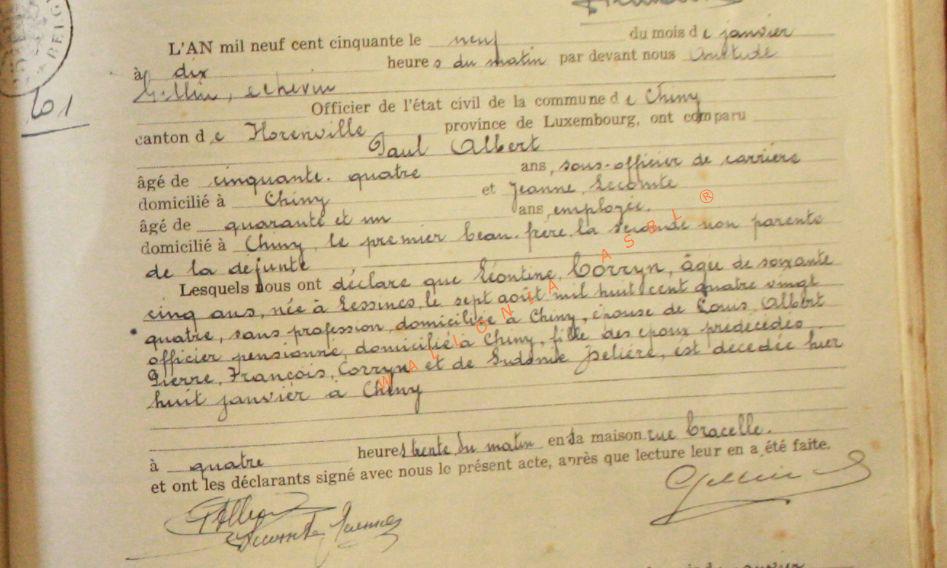 L'AN mil neuf cent cinquante le neuf du mois de janvier
à dix heures du matin par devant nous
Gellin, echevin
Officier de l'état civil de la commune de Chiny
61
canton de Florenville province de Luxembourg, ont comparu
Paul Albert
âgé de cinquante-quatre ans, sous-officier de carrière
domicilié à Chiny et Jeanne Lecomte
âgé de quarante et un ans, employée.
domicilié à Chiny, le premier beau-frère la seconde non parente
de la défunte
Lesquels nous ont déclaré que Léontine, Corryn, âgée de soixante
cinq ans, née à Lessines, le sept août mil huit cent quatre vingt
quatre, sans profession, domiciliée à Chiny, épouse de Louis Albert
officier pensionné, domicilié à Chiny, fille des epoux prédécédés,
Pierre, François, Corryn et de est décédée hier
huit janvier à Chiny
à quatre heures trente du matin en sa maison rue
et ont les déclarants signé avec nous le présent acte, après que lecture leur en a été faite.
PAlbert
Lecomte Jeanne
Gellin
WALLONIA ASBL ®